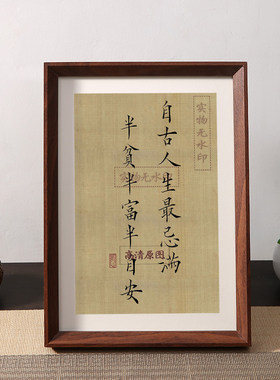 自古人生最忌满
半贫半富半自安
实物无水印
实物无水印
高清原图